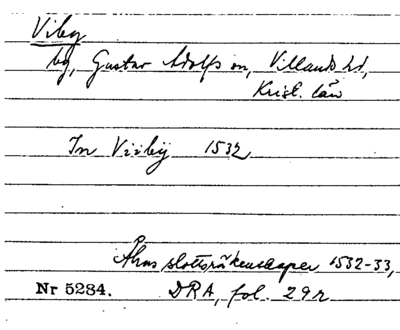 Viby
by, Gustav Adolfs sn, Villands hd,
Krist. län
In Viiby 1532
Åhus slottsräkenskaper 1532-33,
Nr 5284. DRA, fol. 29r